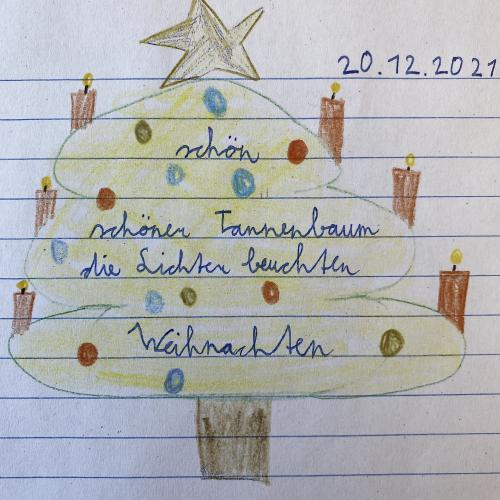 20.12.2021
schön
schöner Tannenbaum
die Lichter beuchten
Weihnachten